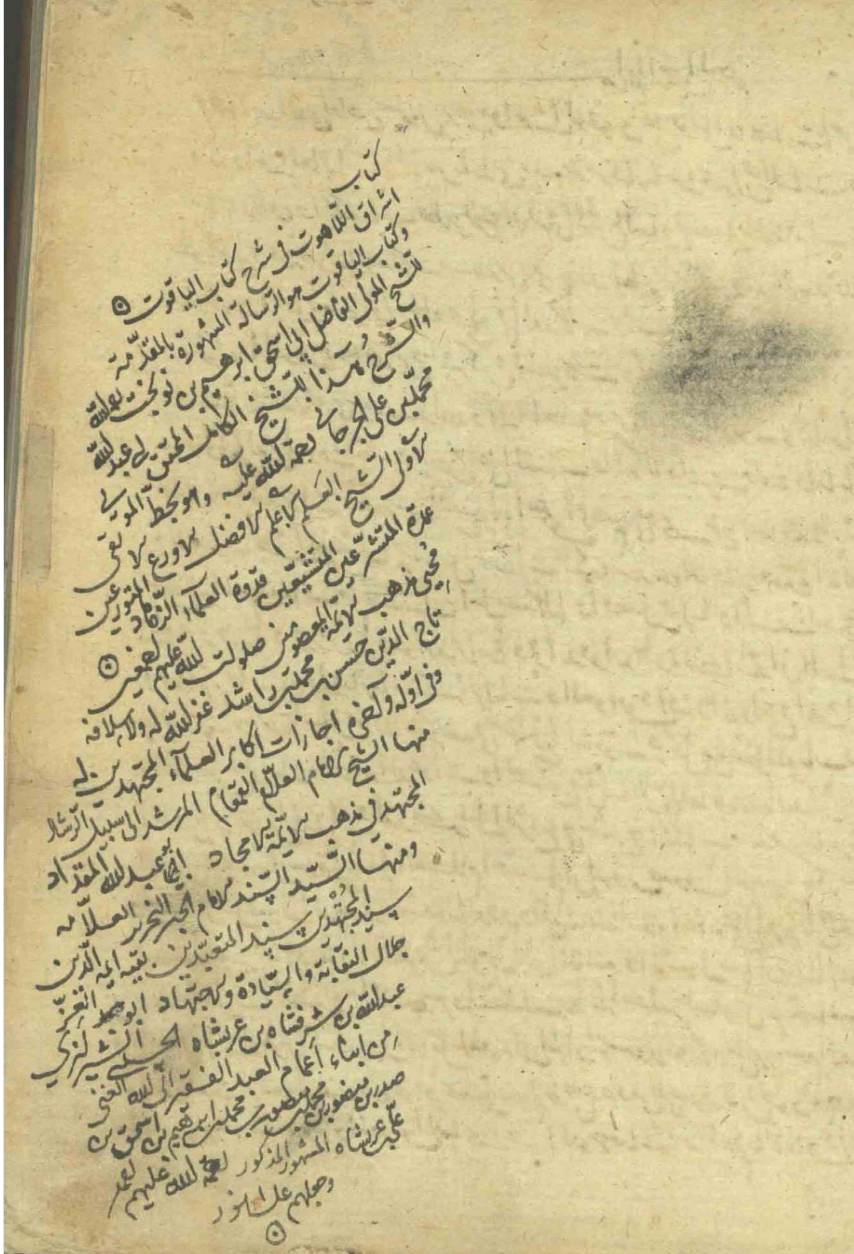 كتاب
اشراق اللاهوت في شرح كتاب الياقوت
وكتاب الياقوت هو الرسالة المشهورة بالمقدمة
للشيخ المولى الفاضل ابي اسحق ابرهيم بن نوبخت رحمه الله
والشرح هذا للشيخ الكامل المحقق ابي عبد الله
محمد بن علي الجرجاني رحمة الله عليه وهو بخط المولى
الاول الشيخ العالم الاعلم الافضل الاورع الاتقى
عمدة المتشرعين المتشيعين قدوة العلماء الزهاد المتورعين
محيي مذهب الائمة المعصومين صلوات الله عليهم اجمعين
تاج الدين حسن بن محمد بن راشد غفر الله له ولاسلافه
وفي اوله وآخره اجازات اكابر العلماء المجتهدين له
منها الشيخ الامام العلام القمقام المرشد الى سبيل الرشاد
المجتهد في مذهب الائمة الامجاد ابي عبد الله المقداد
ومنها السيد السند الامام الحبر النحرير العلامة
سيد المجتهدين سند المتعبدين بقية ايمة الدين
جلال النقابة والسيادة والاجتهاد ابو العز
عبد الله بن شرفشاه بن عربشاه الحسيني الشيرازي
من ابناء اعمام العبد الفقير الى الله الغني
صدر بن منصور بن محمد بن منصور بن محمد بن ابرهيم بن اسحق بن
علي بن عربشاه المشهور المذكور رحمة الله عليهم
وجعلهم على